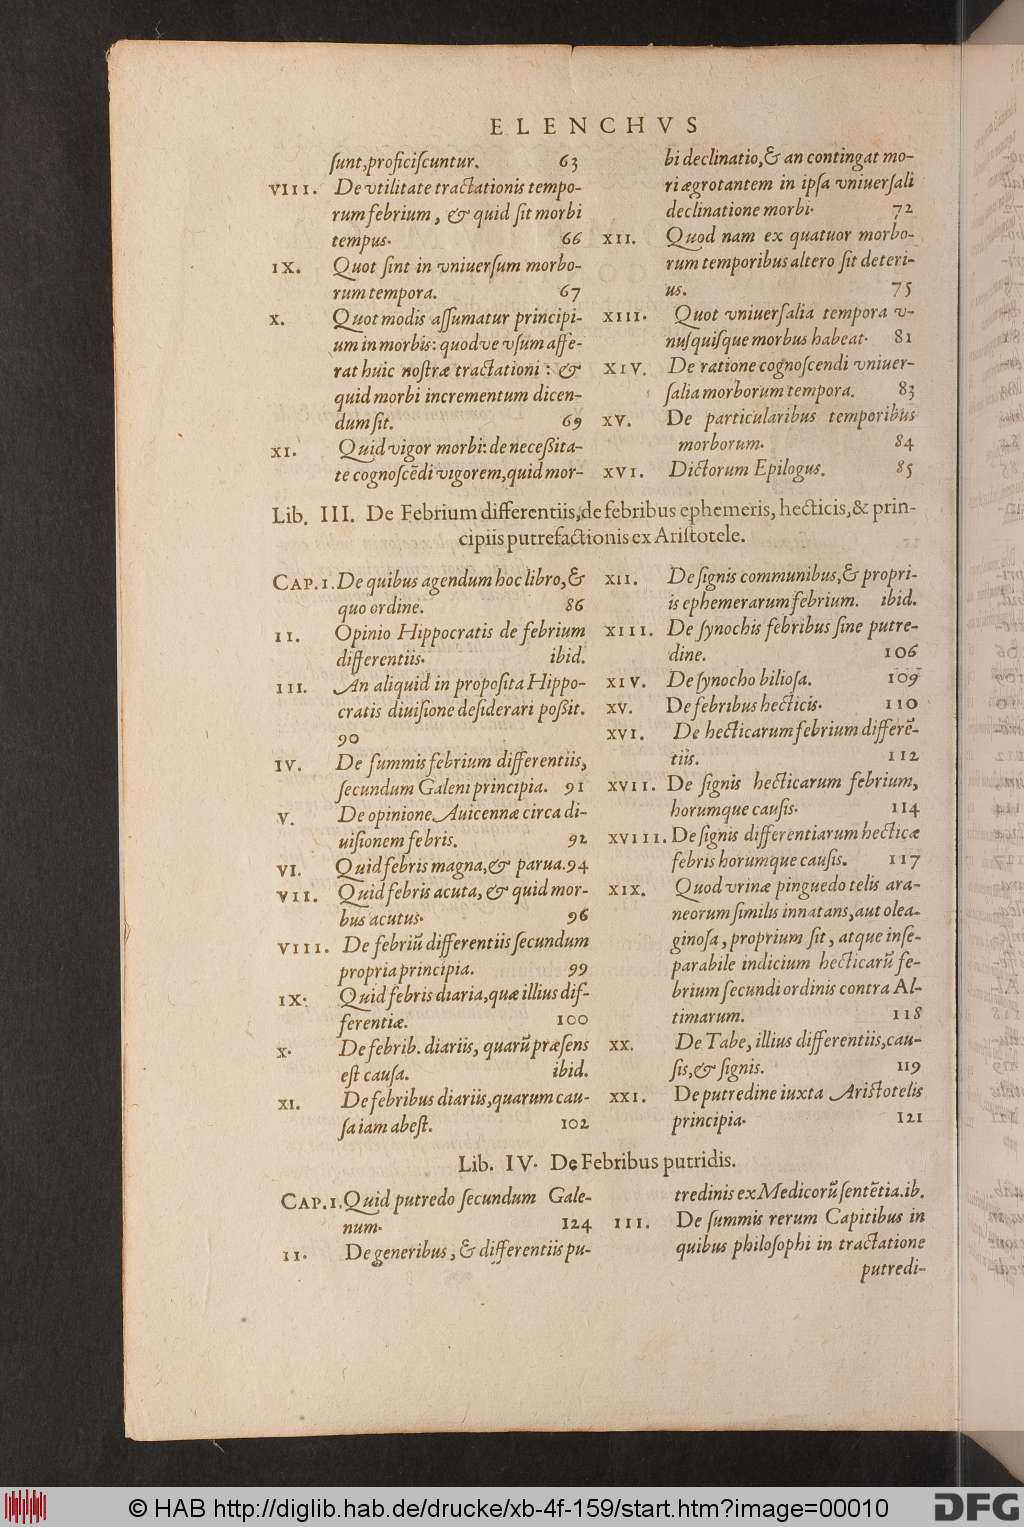 ELENCHVS
ſunt, proficiſcuntur. 63
VIII. De vtilitate tractationis tempo-
rum febrium, & quid ſit morbi
tempus. 66
IX. Quot ſint in vniuerſum morbo-
rum tempora. 67
X. Quot modis aſſumatur principi-
um in morbis: quodve vſum affe-
rat huic noſtræ tractationi: &
quid morbi incrementum dicen-
dum ſit. 69
XI. Quid vigor morbi: de neceßita-
te cognoſcẽdi vigorem, quid mor-
bi declinatio, & an contingat mo-
ri ægrotantem in ipſa vniuerſali
declinatione morbi. 72
XII. Quod nam ex quatuor morbo-
rum temporibus altero ſit deteri-
us. 75
XIII. Quot vniuerſalia tempora v-
nuſquiſque morbus habeat. 81
XIV. De ratione cognoſcendi vniuer-
ſalia morborum tempora. 83
XV. De particularibus temporibus
morborum. 84
XVI. Dictorum Epilogus. 85
Lib. III. De Febrium differentiis, de febribus ephemeris, hecticis, & prin-
cipiis putrefactionis ex Ariſtotele.
CAP. I. De quibus agendum hoc libro, &
quo ordine. 86
II. Opinio Hippocratis de febrium
differentiis. ibid.
III. An aliquid in propoſita Hippo-
cratis diuiſione deſiderari poßit.
90
IV. De ſummis febrium differentiis,
ſecundum Galeni principia. 91
V. De opinione Auicennæ circa di-
uiſionem febris. 92
VI. Quid febris magna, & parua. 94
VII. Quid febris acuta, & quid mor-
bus acutus. 96
VIII. De febriũ differentiis ſecundum
propria principia. 99
IX. Quid febris diaria, quæ illius dif-
ferentiæ. 100
X. De febrib. diariis, quarũ præſens
eſt cauſa. ibid.
XI. De febribus diariis, quarum cau-
ſa iam abeſt. 102
XII. De ſignis communibus, & propri-
is ephemerarum febrium. ibid.
XIII. De ſynochis febribus ſine putre-
dine. 106
XIV. De ſynocho bilioſa. 109
XV. De febribus hecticis. 110
XVI. De hecticarum febrium differẽ-
tiis. 112
XVII. De ſignis hecticarum febrium,
horumque cauſis. 114
XVIII. De ſignis differentiarum hecticæ
febris horumque cauſis. 117
XIX. Quod vrinæ pinguedo telis ara-
neorum ſimilis innatans, aut olea-
ginoſa, proprium ſit, atque inſe-
parabile indicium hecticarũ fe-
brium ſecundi ordinis contra Al-
timarum. 118
XX. De Tabe, illius differentiis, cau-
ſis, & ſignis. 119
XXI. De putredine iuxta Ariſtotelis
principia. 121
Lib. IV. De Febribus putridis.
CAP. I. Quid putredo ſecundum Gale-
num. 124
II. De generibus, & differentiis pu-
tredinis ex Medicorũ ſentẽtia. ib.
III. De ſummis rerum Capitibus in
quibus philoſophi in tractatione
putredi-
© HAB http://diglib.hab.de/drucke/xb-4f-159/start.htm?image=00010
DFG